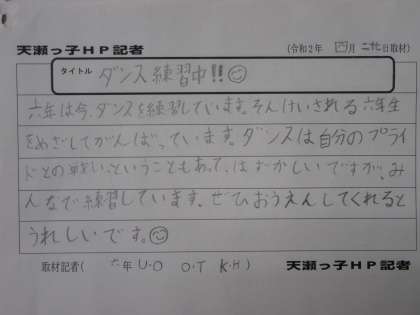 天瀬っ子HP記者 (令和2年 四月二九日取材)
タイトル ダンス練習中!!☺
六年は今、ダンスを練習しています。そんけいされる六年生
をめざしてがんばっています。ダンスは自分のプライ
ドとの戦いということもあって、はずかしいですが、み
んなで練習しています。ぜひおうえんしてくれると
うれしいです。☺
取材記者( 六年 U・O O・T K・H ) 天瀬っ子HP記者